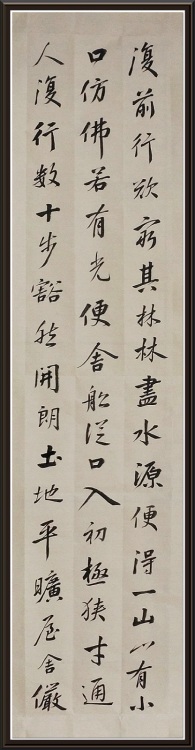 復前行欲窮其林林盡水源便得一山々有小
口仿佛若有光便舍船從口入初極狹才通
人復行数十步豁然開朗土地平曠屋舍儼